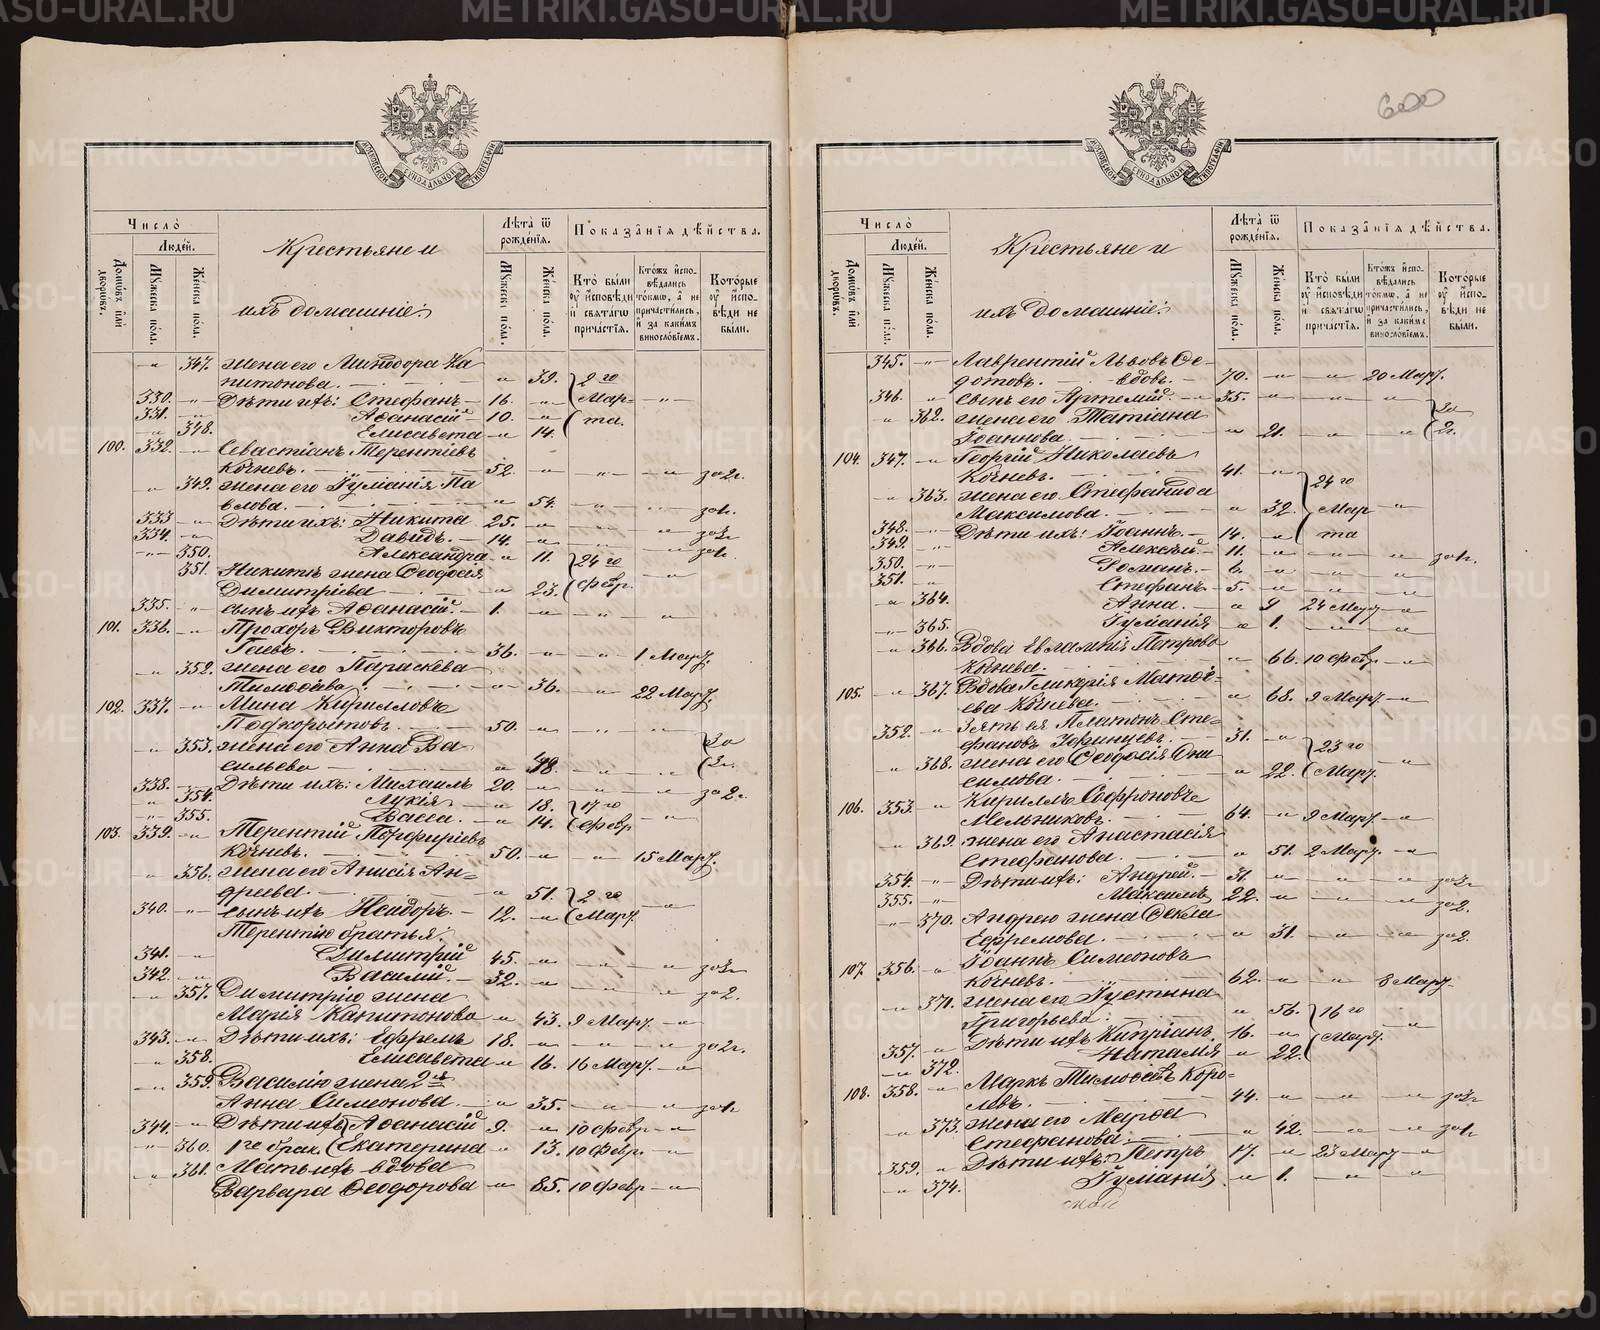 METRIKI.GASO-URAL.RU
МОСКОВСКОЙ СѴНОДАЛЬНОЙ ТИПОГРАФІИ
Число̀
Людéй.
Домѡ́въ и҆лѝ дворѡ́въ.
Мꙋ́жеска по́ла.
Же́нска по́ла.
Крестьяне и
ихъ домашніе:
Лѣ́та ѿ рожде́нїѧ.
Мꙋ́жеска по́ла.
Же́нска по́ла.
Показа́нїѧ дѣ́йства.
Кто̀ бы́ли ᲂу҆ и҆сповѣди и҆ свѧта́гѡ прича́стїѧ.
Кто́жъ и҆спо-вѣдались то́кмѡ, а҆ не причасти́лись, и҆ за каки́мъ винослові́емъ.
Кото́рые ᲂу҆ и҆спо-вѣди не бы́ли.
„ 347. жена его Минодора Ка
питонова. — „ 39. 2го
330. „ Дѣти ихъ: Стефанъ 16. „ Мар- „
331. „ Аѳанасій 10. „ та.
„ 348. Елисавета „ 14.
100. 332. „ Севастіанъ Терентіевъ
Кочневъ. 52. „ „ „ за 2г.
„ 349. жена его Іуліанія Па
влова. „ 54. „ „
333 „ Дѣти ихъ: Никита 25. „ „
334. „ Давидъ. 14. „ „
„ 350. Александра „ 11. 24го
351. Никиты жена Ѳеодосія
Димитріева „ 23. Февр. „
335. „ сынъ ихъ Аѳанасій. 1. „ „ „
101. 336. „ Прохоръ Викторовъ
Гаевъ. 36. „ „ 1 Март.
„ 352. жена его Параскева
Тимоѳеева. „ 36. „ 22 Март.
102. 337. „ Мина Кирилловъ
Подкорытовъ. 50. „ „ „
„ 353. жена его Анна Ва
сильева „ 48. „ „ За
338. „ Дѣти ихъ: Михаилъ 20. „ „ „ за 2г.
„ 354. Лукія „ 18. 17го
„ 355. Васса. „ 14. Февр „
103. 339. „ Терентій Порфиріевъ
Кочневъ. 50. „ „ 15 Март.
„ 356. жена его Анисія Ан-
дреева. „ 51. 2го
340. „ сынъ ихъ Исидоръ. 12. „ Март. „
Терентію братья:
341. „ Димитрій 45. „ „ „
342. „ Василій. 32. „ „ „ за 2.
„ 357. Димитрію жена
Марія Капитонова „ 43. 9 Март. „
343. „ Дѣти ихъ: Ефремъ 18. „ „ „ за 2г.
„ 358. Елисавета „ 16. 16 Март. „
„ 359. Василію жена 2я
Анна Симеонова. „ 35. „ „
344. „ Дѣти ихъ Аѳанасій 9. „ 10 Февр „
„ 360. 1го брак. Екатерина „ 13. 10 Февр. „
„ 361. Мать ихъ вдова
Варвара Ѳеодорова „ 85. 10 Февр „
600
Число̀
Людéй.
Домѡ́въ и҆лѝ дворѡ́въ.
Мꙋ́жеска по́ла.
Же́нска по́ла.
Крестьяне и
ихъ домашніе:
Лѣ́та ѿ рожде́нїѧ.
Мꙋ́жеска по́ла.
Же́нска по́ла.
Показа́нїѧ дѣ́йства.
Кто̀ бы́ли ᲂу҆ и҆сповѣди и҆ свѧта́гѡ прича́стїѧ.
Кто́жъ и҆спо-вѣдались то́кмѡ, а҆ не причасти́лись, и҆ за каки́мъ винослові́емъ.
Кото́рые ᲂу҆ и҆спо-вѣди не бы́ли.
345. „ Лаврентій Львовъ Ѳе-
дотовъ. вдовъ. 70. „ „ 20 Март.
346. „ сынъ его Артемій. 35. „ „ „ За
„ 362. жена его Татіана
Іоаннова „ 21. „ „ 2г.
104. 347. „ Георгій Николаевъ
Кочневъ. 41. „ 24го
„ 363. жена его Стефанида
Максимова. „ 32. Мар „
348. „ Дѣти ихъ: Іоаннъ. 14. „ та
349. „ Алексѣй. 11. „ „ „
350. „ Романъ. 6. „ „ „
351. „ Стефанъ 5. „ „ „
„ 364. Анна. „ 9 24 Март „
„ 365. Іуліанія „ 1. „ „
„ 366. Вдова Евлампія Петрова
Кочнева. „ 66. 10 Февр „
105. „ 367. Вдова Гликерія Матѳе-
ева Кочнева. „ 68. 9 Март. „
352. „ Зять ея Платонъ Сте-
фановъ 31. „ 23го
„ 368. жена его Ѳеодосія Они
симова. „ 22. Март. „
106. 353. „ Кириллъ Софроновъ
Мельниковъ. 64. „ 9 Март. „
„ 369. жена его Анастасія
Стефанова. „ 51. 2 Март. „
354. „ Дѣти ихъ: Андрей. 31. „ „ „
355. „ Максимъ 22. „ „ „ за 2.
„ 370. Андрею жена Ѳекла
Ефремова. „ 31. „ „ за 2.
107. 356. „ Іоаннъ Симеоновъ
Кочневъ. 62. „ „ 8 Март.
„ 371. жена его Іустина
Григорьева. „ 56. 16го
357. „ Дѣти ихъ Кипріанъ. 16. „ Март. „
„ 372. Наталія „ 22.
108. 358. „ Маркъ Тимоѳеевъ Коро-
левъ. 44. „ „ „
„ 373. жена его Марѳа
Стефанова. „ 42. „ „
359. „ Дѣти ихъ: Петръ 17. „ 23 Март „
„ 374. Іуліанія. „ 1. „ „